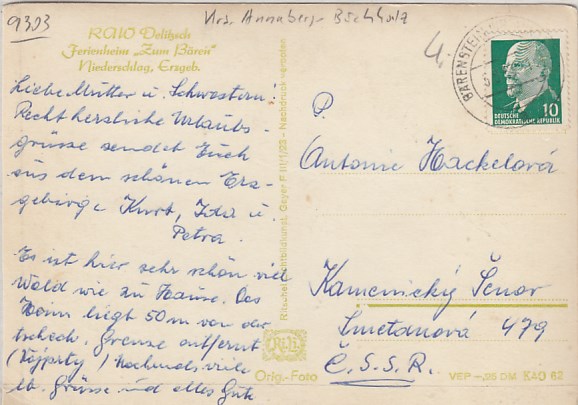 9303
Krs. Annaberg-Buchholz
4.
RAW Delitzsch
Ferienheim „Zum Bären"
Niederschlag, Erzgeb.
Liebe Mutter u. Schwestern!
Recht herzliche Urlaubs-
grüsse sendet Euch
aus dem schönen Erz-
gebirge Kurt, Ida u.
Petra.
Es ist hier sehr schön viel
Wald wie zu Hause. Das
Heim liegt 50 m von der
tschech. Grenze entfernt
(Vejprty) Nochmals viele
lb. Grüsse und alles Gute
Nachdruck verboten
Gayer F III/1/23
Orig.-Foto
BÄRENSTEIN
10
DEUTSCHE
DEMOKRATISCHE REPUBLIK
P.
Antonie Hackelová
Kamenický Šenov
Smetanová 479
Č.S.S.R.
VEP -,25 DM XAO 62